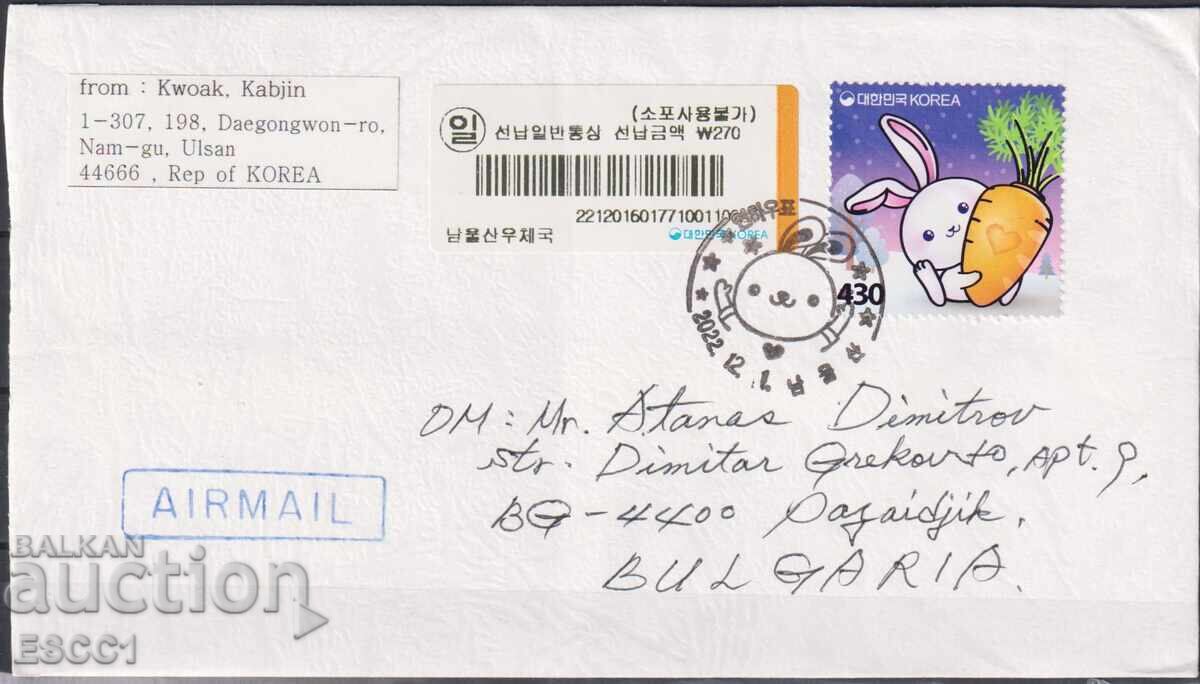 from : Kwoak, Kabjin
1-307, 198, Daegongwon-ro,
Nam-gu, Ulsan
44666 , Rep of KOREA
(소포사용불가)
일 선납일반통상 선납금액 ₩270
22120160177100110
남울산우체국
대한민국 KOREA
대한민국 KOREA
430
2022. 12. 1. 남울산
TO: Mr. Atanas Dimitrov
str. Dimitar Grekov 10, apt. 9,
BG-4400 Pazaidjik.
BULGARIA.
AIRMAIL
BALKAN
auction
ESCC1